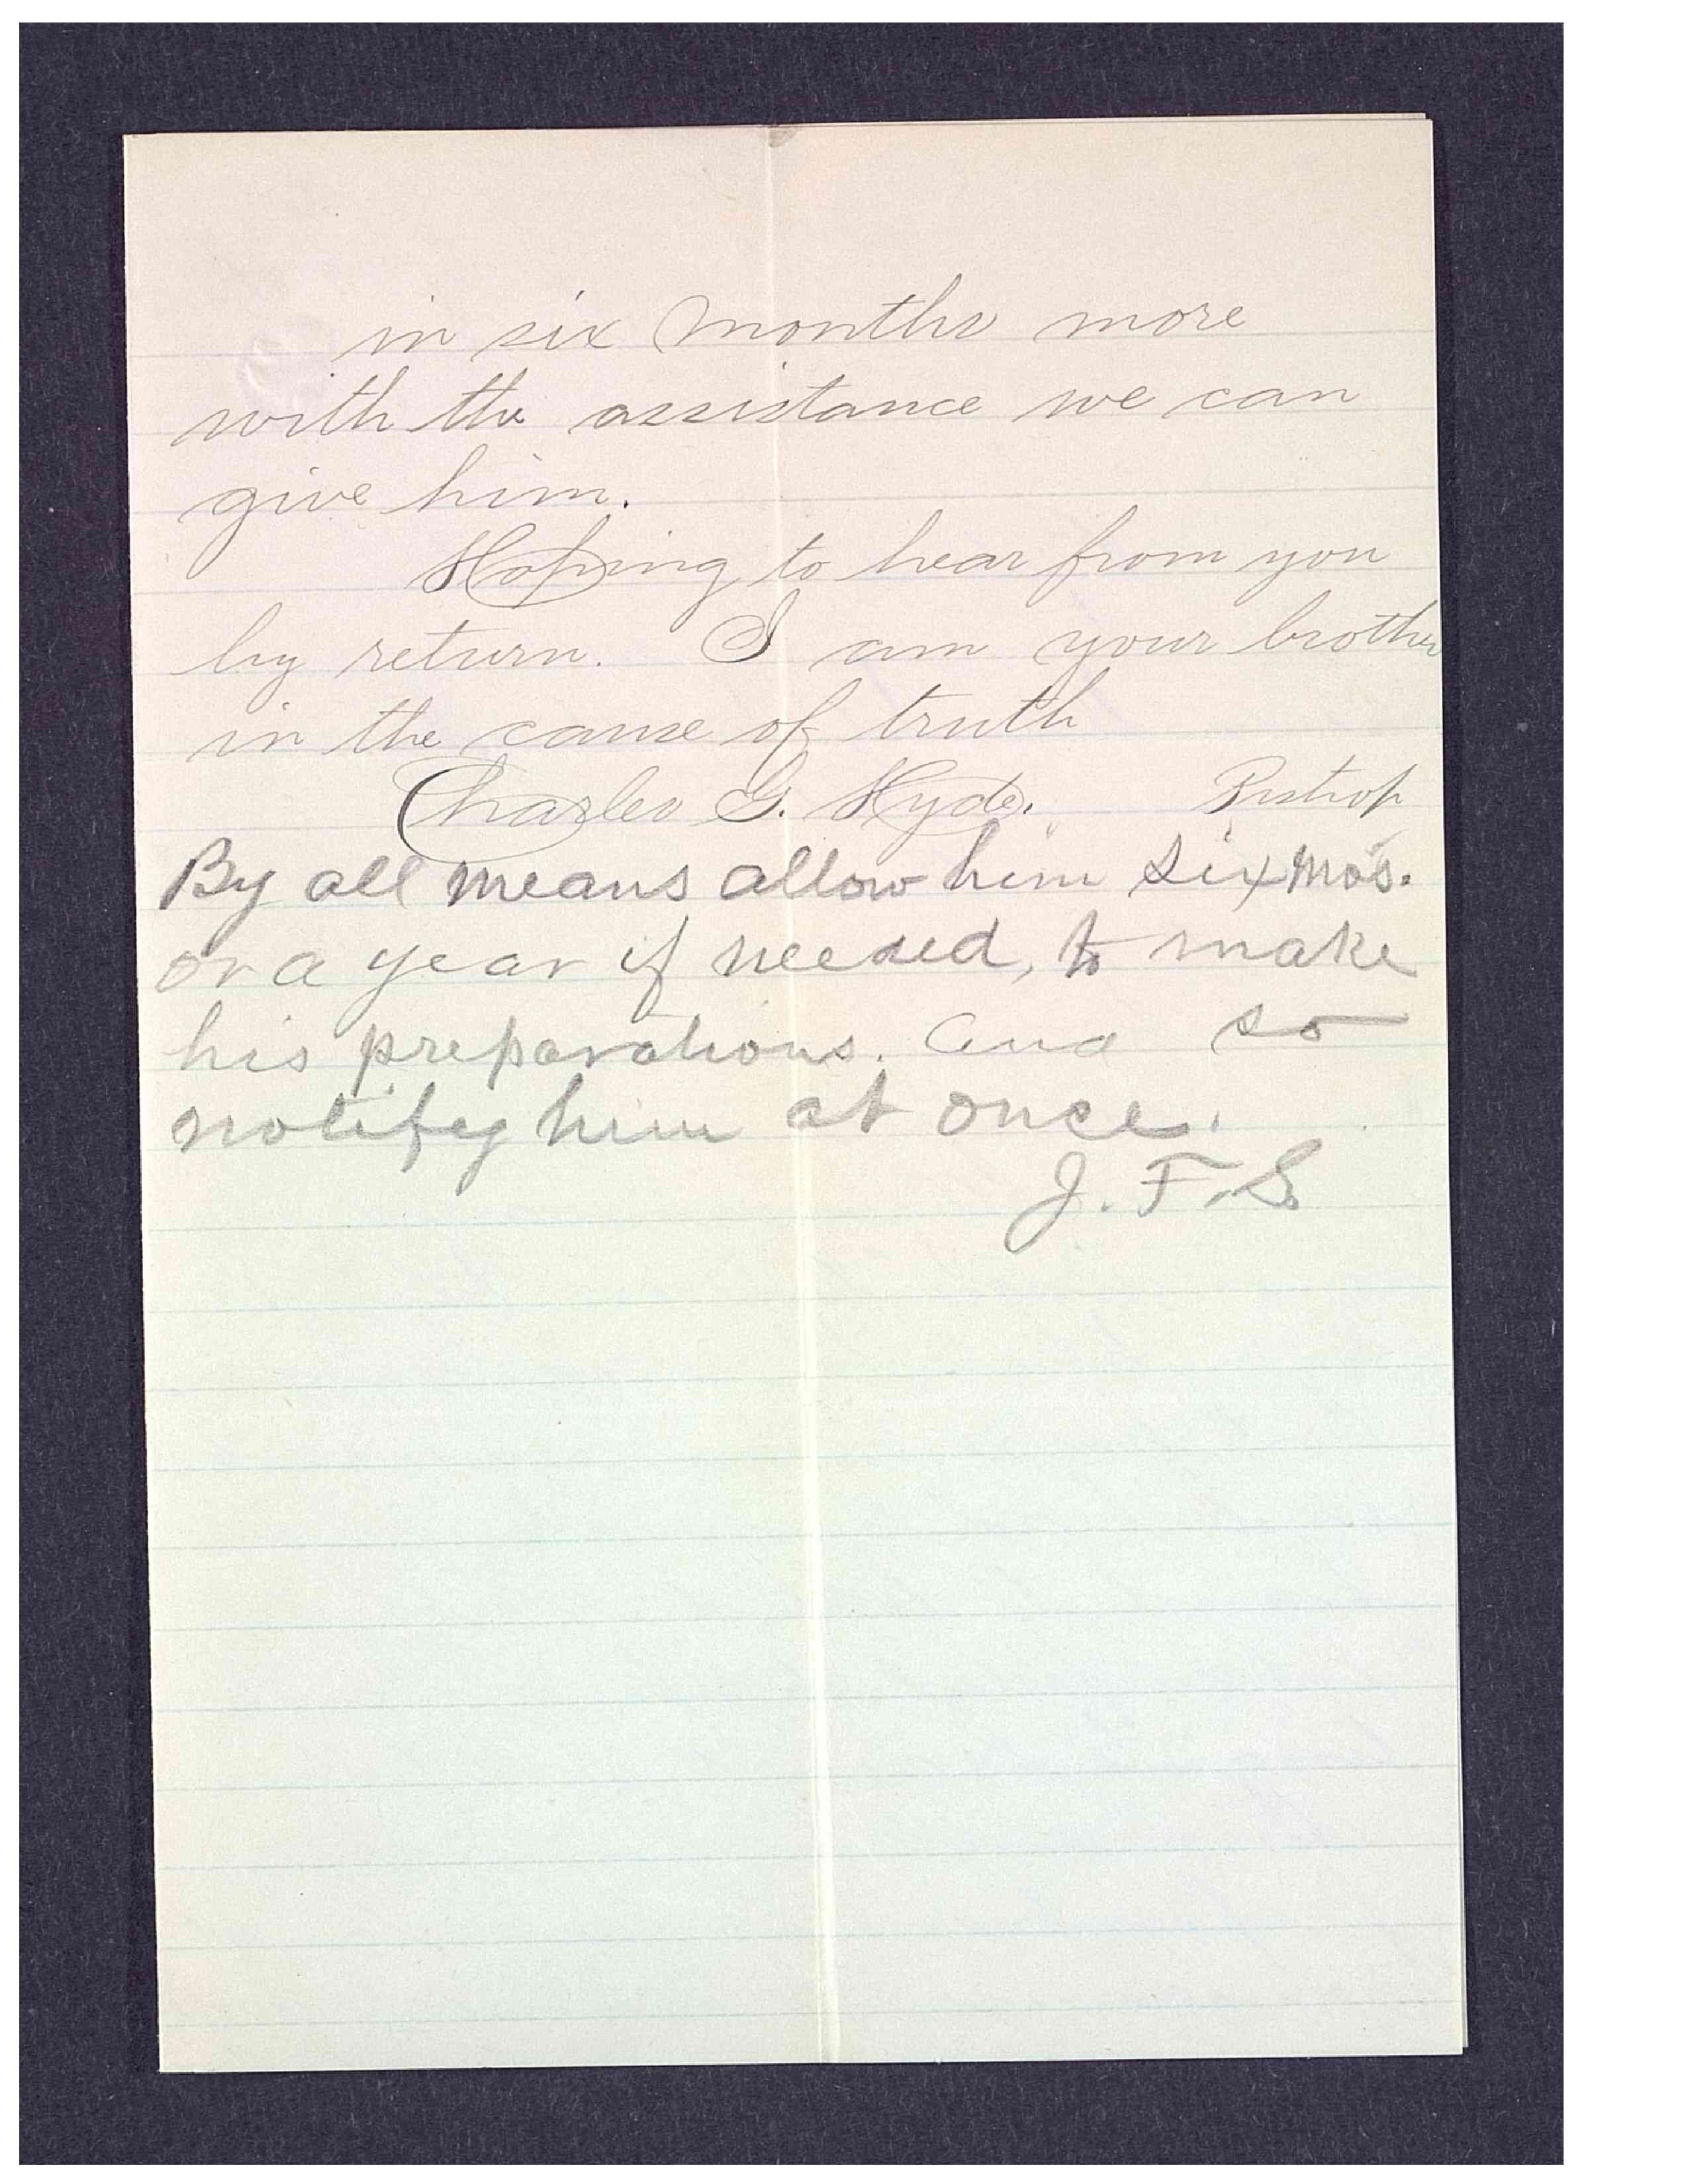 in six months more
with the assistance we can
give him.
Hoping to hear from you
by return. I am your brother
in the cause of truth
Charles G. Hyde. Bishop
By all means allow him six mos.
or a year if needed, to make
his preparations. And so
notify him at once.
J. F. S.